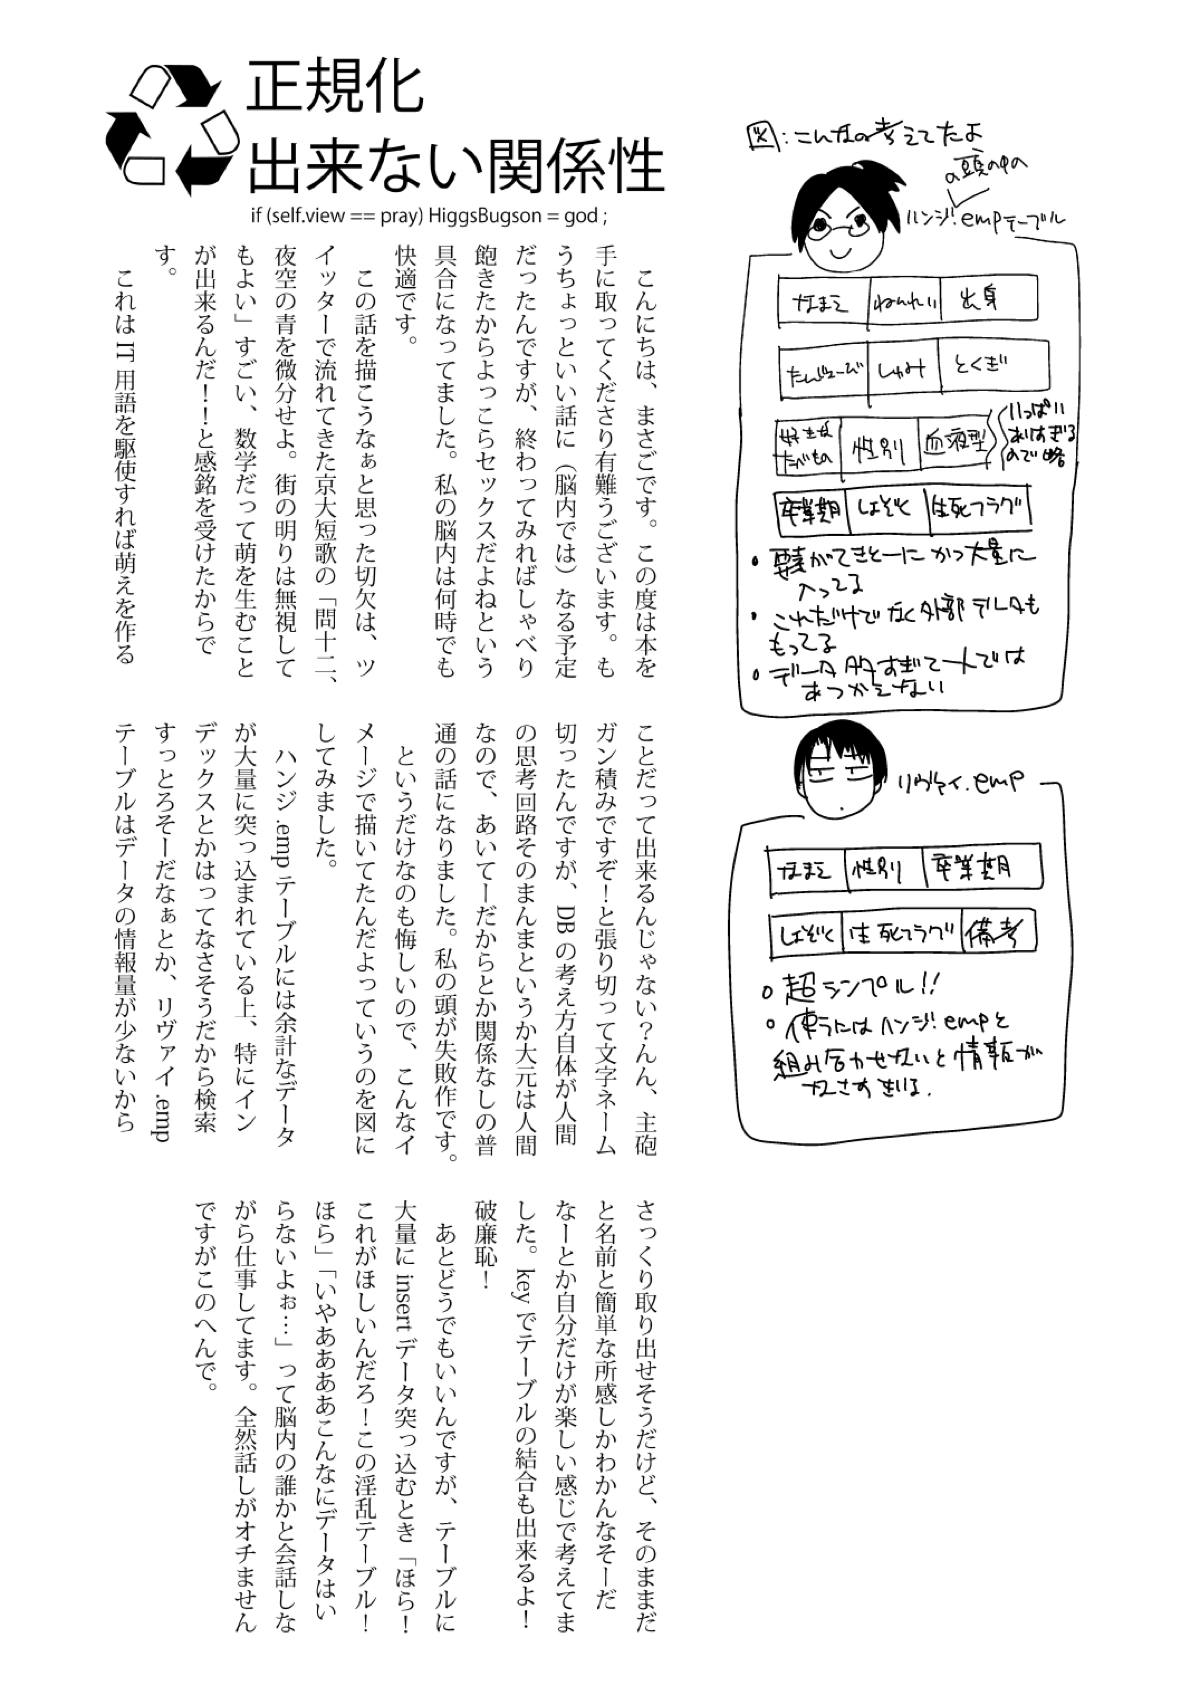 正規化
出来ない関係性
if (self.view == pray) HiggsBugson = god ;
こんにちは、まさごです。この度は本を
手に取ってくださり有難うございます。も
うちょっといい話に（脳内では）なる予定
だったんですが、終わってみればしゃべり
飽きたからよっこらセックスだよねという
具合になってました。私の脳内は何時でも
快適です。
この話を描こうなぁと思った切欠は、ツ
イッターで流れてきた京大短歌の「問十二、
夜空の青を微分せよ。街の明りは無視して
もよい」すごい、数学だって萌を生むこと
が出来るんだ！！と感銘を受けたからで
す。
これは IT 用語を駆使すれば萌えを作る
ことだって出来るんじゃない？んん、主砲
ガン積みですぞ！と張り切って文字ネーム
切ったんですが、DB の考え方自体が人間
の思考回路そのまんまというか大元は人間
なので、あいてーだからとか関係なしの普
通の話になりました。私の頭が失敗作です。
というだけなのも悔しいので、こんなイ
メージで描いてたんだよっていうのを図に
してみました。
ハンジ.emp テーブルには余計なデータ
が大量に突っ込まれている上、特にイン
デックスとかはってなさそうだから検索
すっとろそーだなぁとか、リヴァイ.emp
テーブルはデータの情報量が少ないから
さっくり取り出せそうだけど、そのままだ
と名前と簡単な所感しかわかんなそーだ
なーとか自分だけが楽しい感じで考えてま
した。key でテーブルの結合も出来るよ！
破廉恥！
あとどうでもいいんですが、テーブルに
大量に insert データ突っ込むとき「ほら！
これがほしいんだろ！この淫乱テーブル！
ほら」「いやああああこんなにデータはい
らないよぉ…」って脳内の誰かと会話しな
がら仕事してます。全然話しがオチません
ですがこのへんで。
図:こんなの考えてたよ
の頭の中の
ハンジ.empテーブル
なまえ ねんれい 出身
たんじょーび しゅみ とくぎ
好きな たべもの 性別 血液型
いっぱい
ありすぎる
ので略
卒業期 しょぞく 生死フラグ
・要素がてきとーにかつ大量に
入ってる
・これだけでなく外部データも
もってる
・データ多すぎて一人では
あつかえない
リヴァイ.emp
なまえ 性別 卒業期
しょぞく 生死フラグ 備考
・超シンプル!!
・使うにはハンジ.empと
組み合わせないと情報が
なさすぎる.